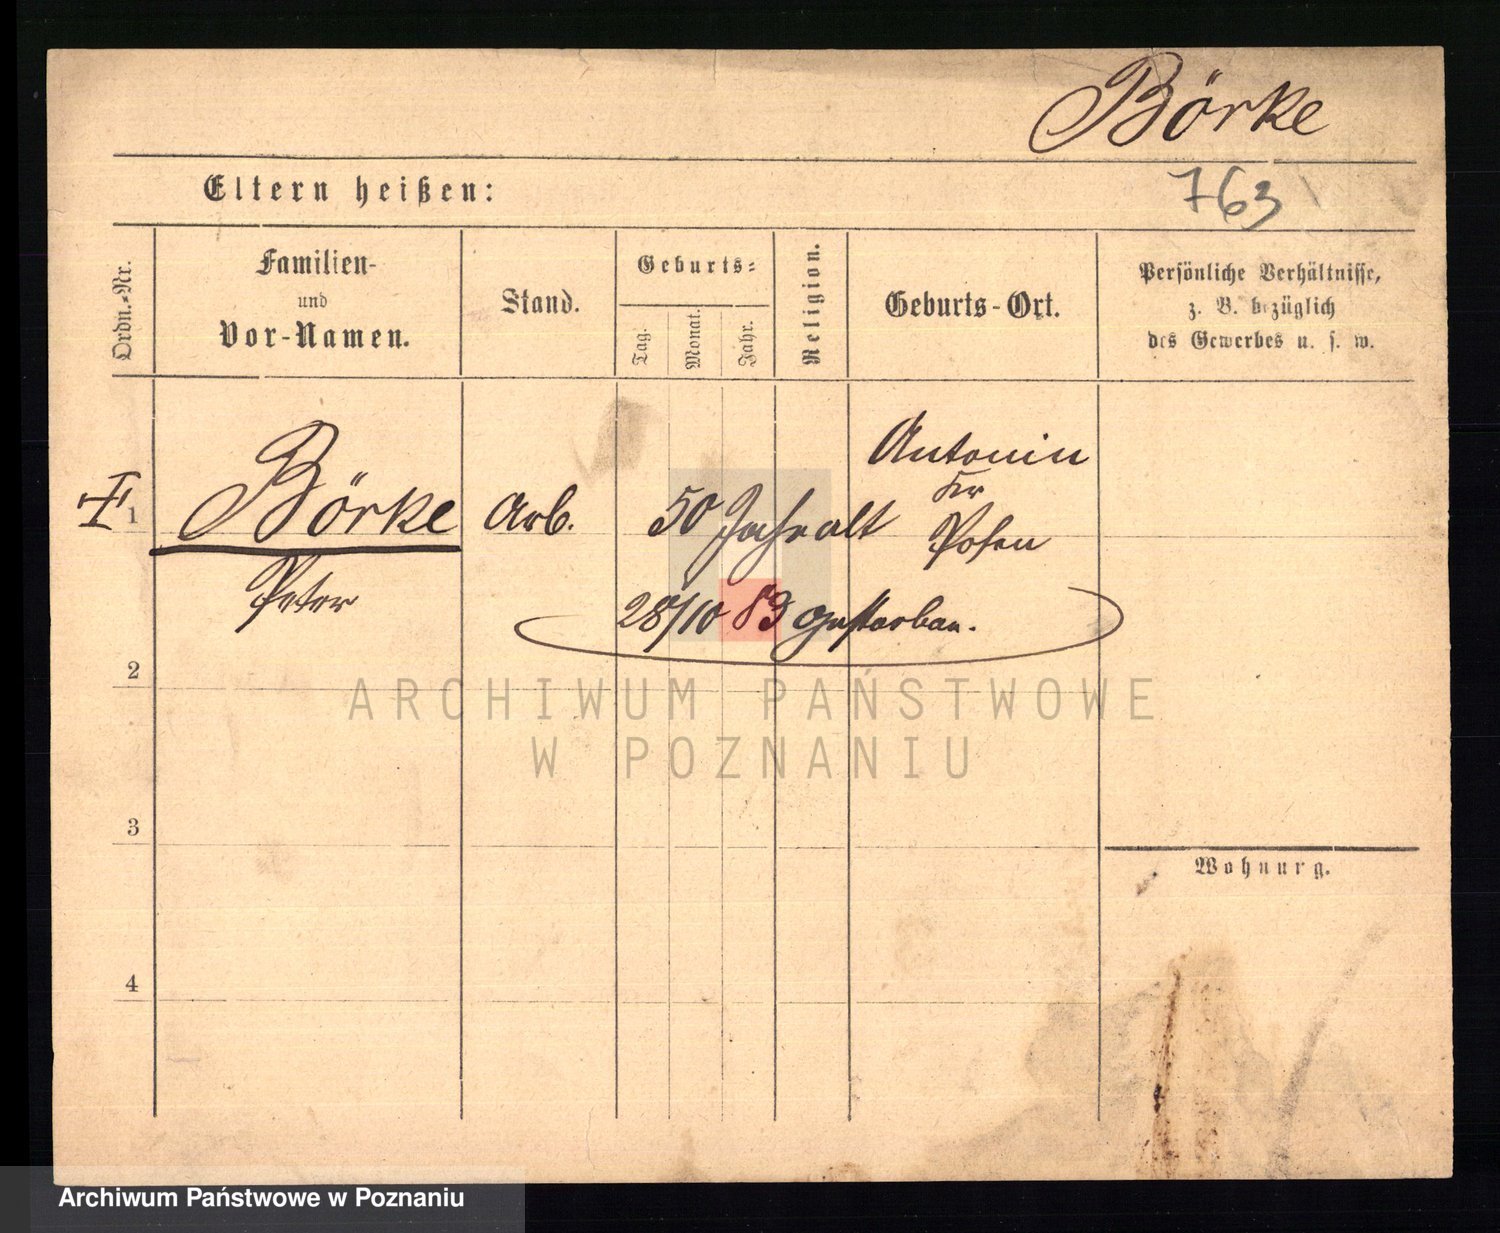 Börke
763
Eltern heißen:
Ordn.-Nr.
Familien-
und
Vor-Namen.
Stand.
Geburts-
Tag.
Monat.
Jahr.
Religion.
Geburts-Ort.
Persönliche Verhältnisse,
z. B. bezüglich
des Gewerbes u. s. w.
1
Börke
Peter
Arb.
50 Jahr alt
Antonin
Kr
Posen
28/10 83 gestorben.
2
ARCHIWUM PAŃSTWOWE
W POZNANIU
3
Wohnung.
4
Archiwum Państwowe w Poznaniu